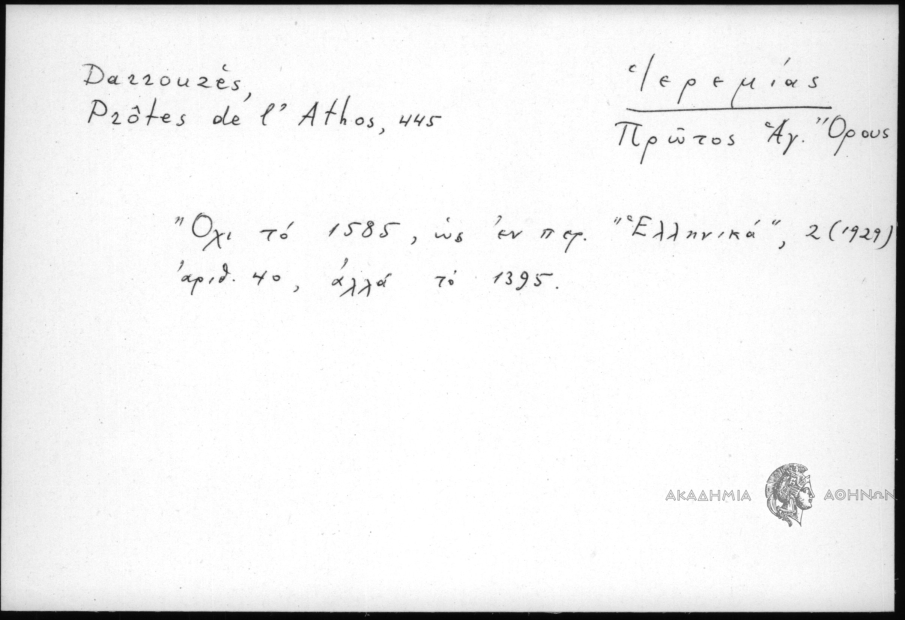 Darrouzès,
Prôtes de l' Athos, 445
Ἱερεμίας
Πρῶτος Ἁγ. Ὄρους
Ὄχι τό 1585, ὡς ἐν περ. "Ἑλληνικά", 2 (1929)
ἀριθ. 40, ἀλλά τό 1395.
ΑΚΑΔΗΜΙΑ ΑΘΗΝΩΝ